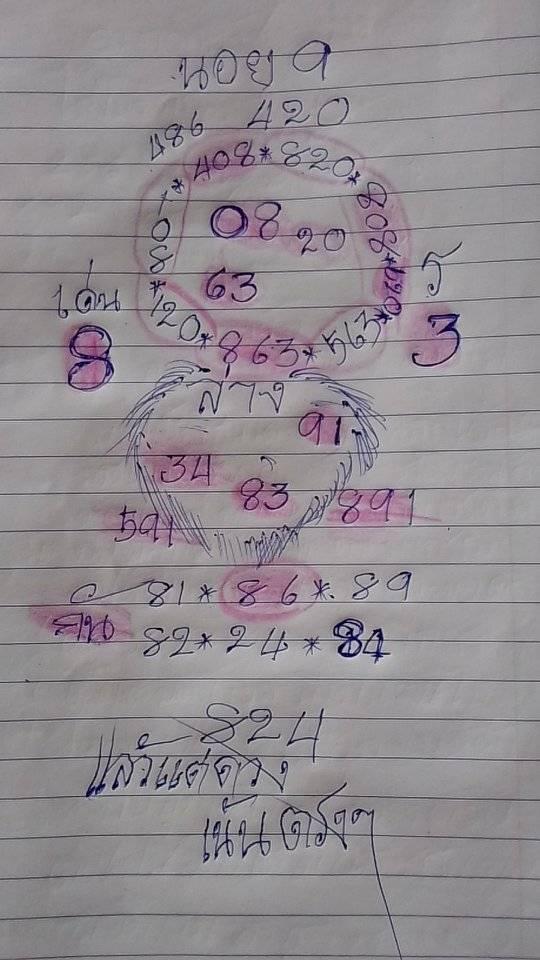 นอย 9
486 420
408*820*
808*
*801*
08 20
63
เด่น
8
5
3
120*863*563*
ล่าง
91
34
83
591
891
81*86*89
82*24*84
824
แล้วแต่ดวง
เน้นตรงๆ